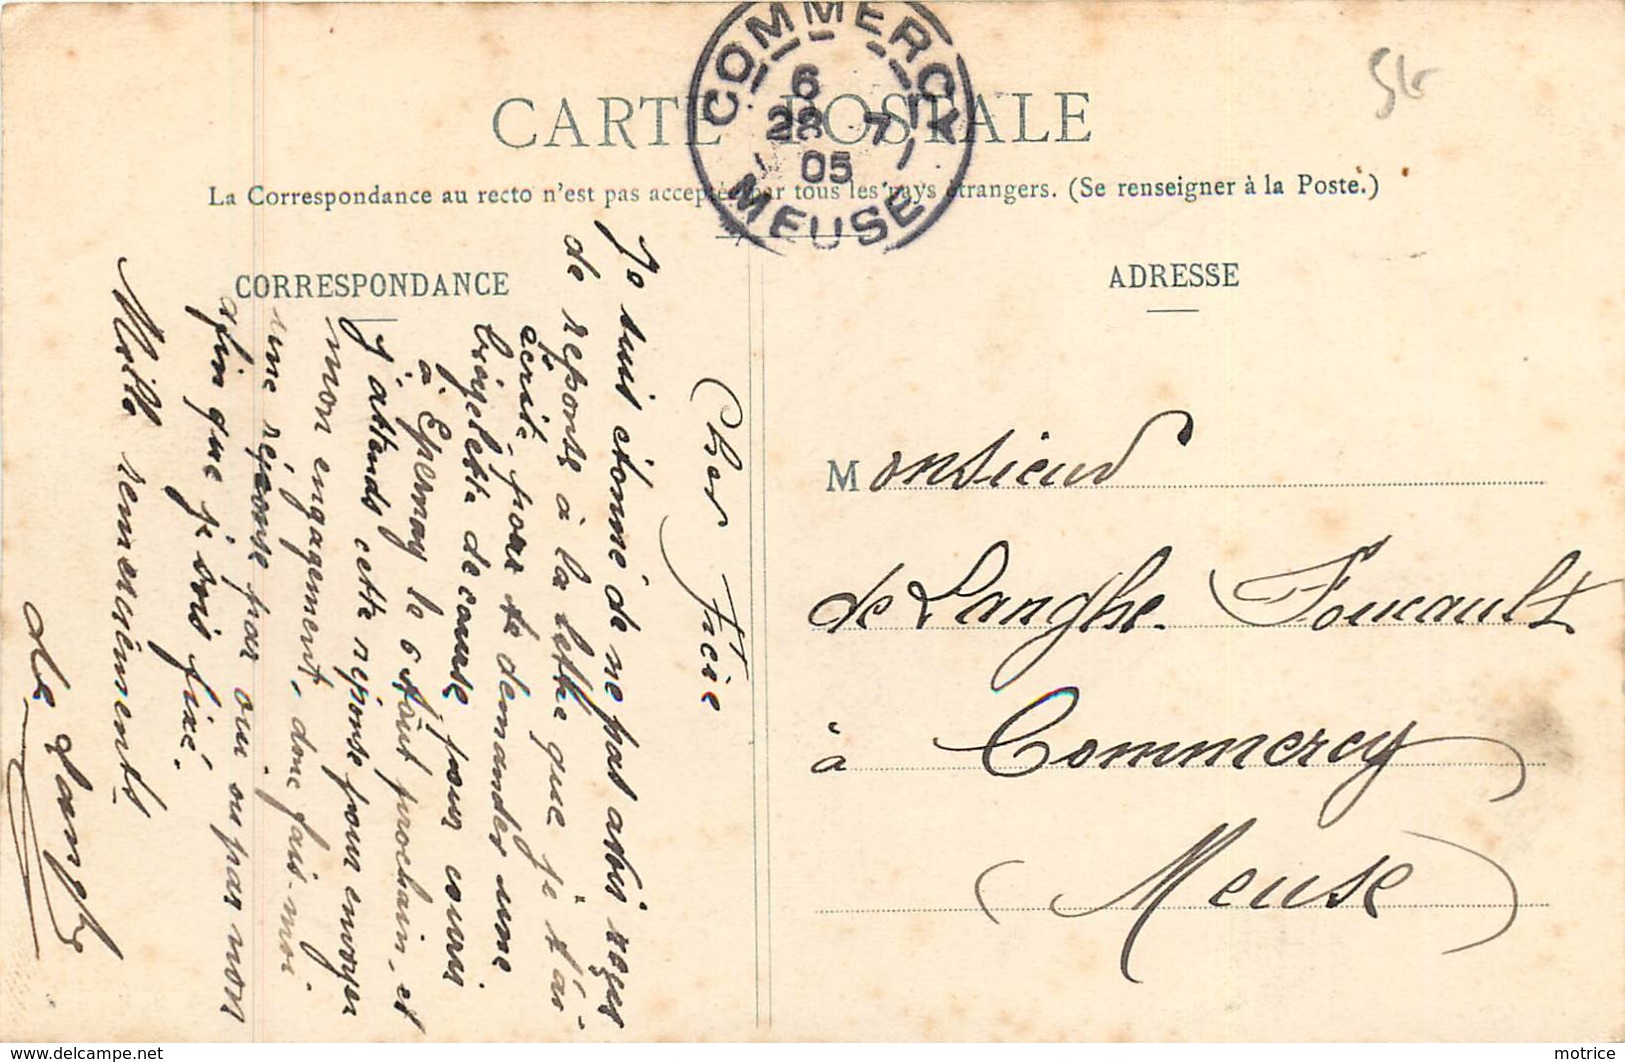 CARTE POSTALE
COMMERCY
6
28 7
05
MEUSE
La Correspondance au recto n'est pas acceptée par tous les pays étrangers. (Se renseigner à la Poste.)
CORRESPONDANCE
ADRESSE
Cher Frère
Je suis étonné de ne pas avoir reçu
de reponse à la lettre que je t'ai
écrite pour te demander une
bicyclette de course pour courir
à Epernay le 6 Août prochain, et
j'attends cette réponse pour envoyer
mon engagement, donc fais-moi
une réponse par oui ou par non
afin que je sois fixé.
Mille remerciements
de Langhe
Monsieur
de Langhe. Foucault
à Commercy
(Meuse)
www.delcampe.net
motrice